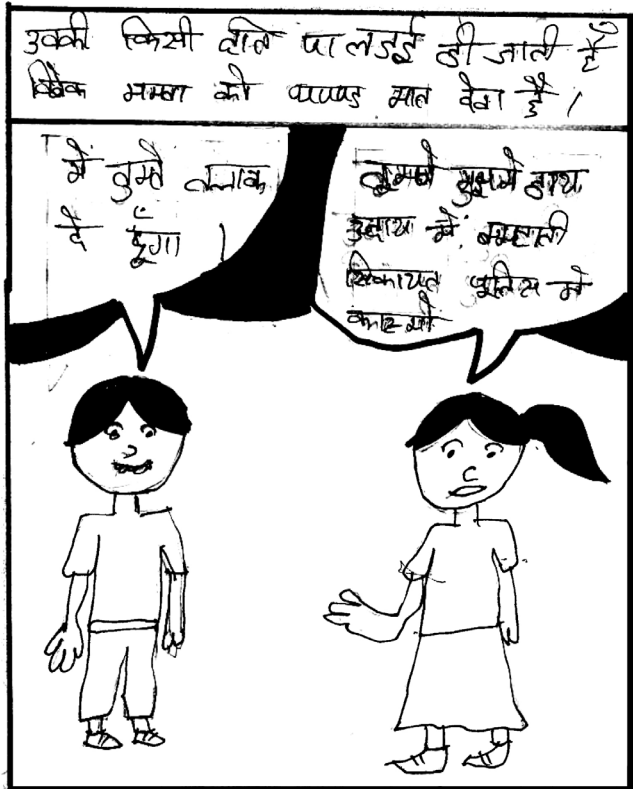 उनकी किसी बात पा लडई हो जाती है
विवेक ममता को थप्पड मार देता है /
मैं तुम्हे तलाक
दे दूँगा /
तुमने मुझमे हाथ
उठाया मैं तुम्हारी
शिकायत पुलिस मे